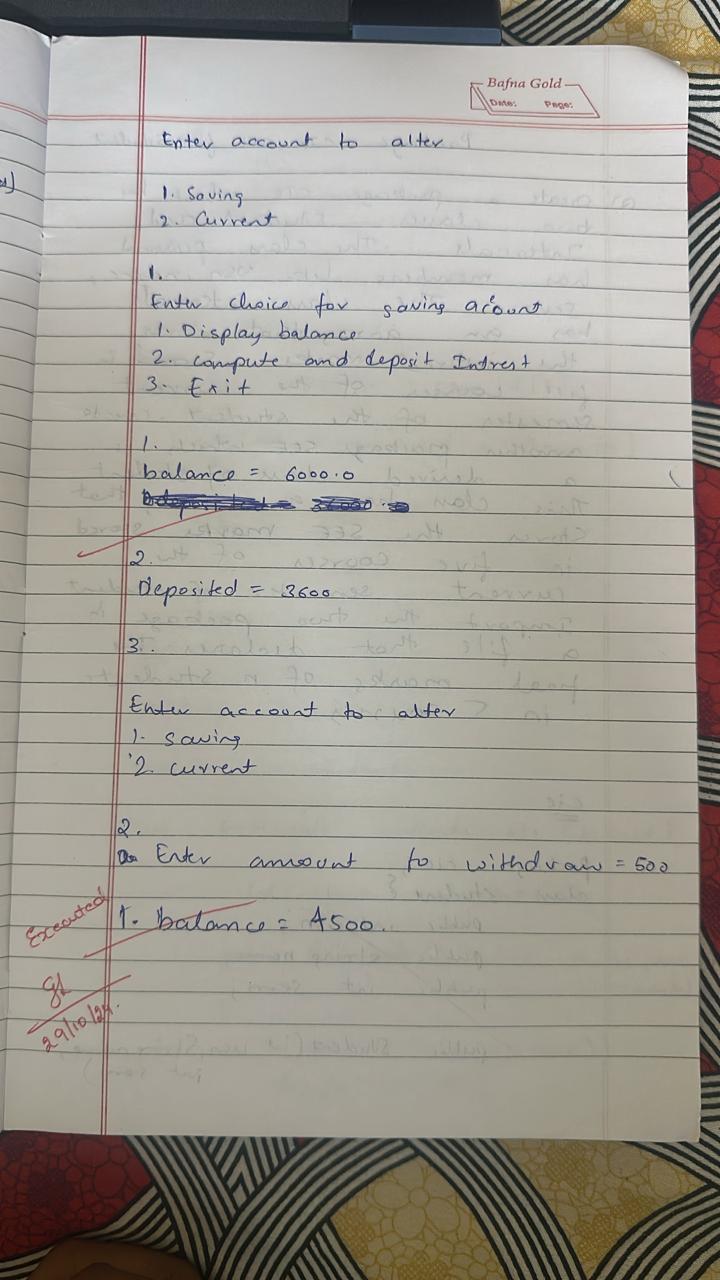 Bafna Gold
Date: Page:
Enter account to alter
1. Saving
2. Current
1.
Enter choice for saving acount
1. Display balance
2. compute and deposit Intrest
3. Exit
1.
balance = 6000.0
2.
Deposited = 3600
3.
Enter account to alter
1. saving
2. current
2.
Enter amount to withdraw = 500
1. balance = 4500.
Executed
29/10/24.